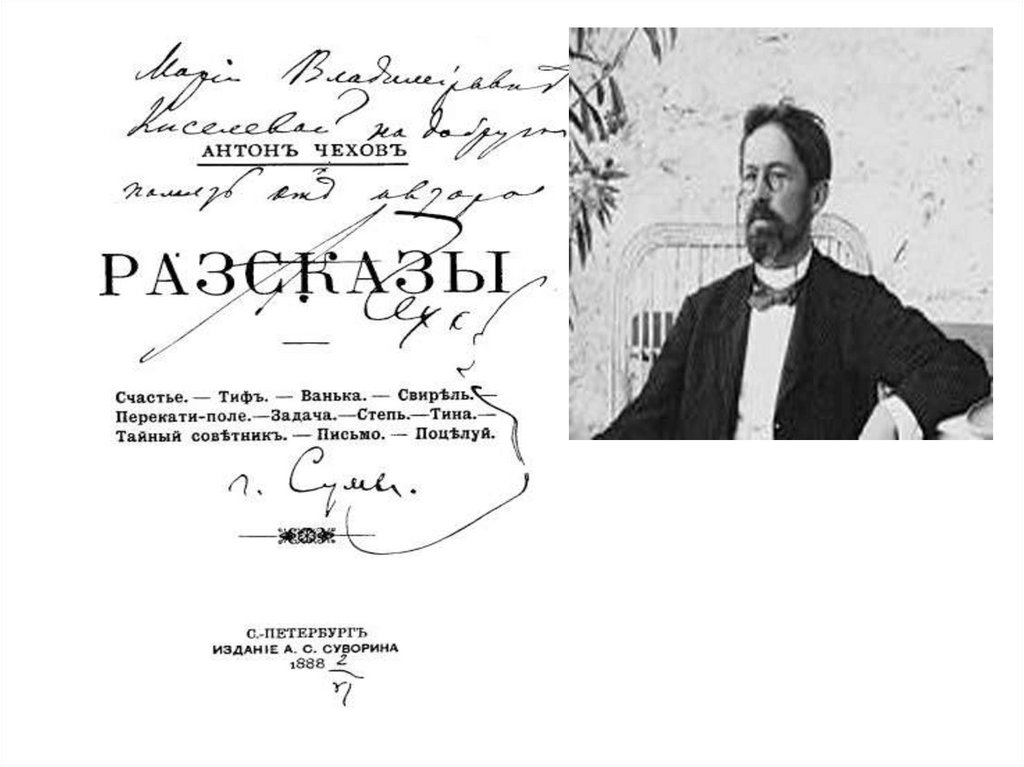 Маріи Владиміровнѣ
Киселевой на добрую
АНТОНЪ ЧЕХОВЪ
память отъ автора
РАЗСКАЗЫ
Чехов
Счастье. — Тифъ. — Ванька. — Свирѣль. —
Перекати-поле. — Задача. — Степь. — Тина. —
Тайный совѣтникъ. — Письмо. — Поцѣлуй.
г. Сумы.
С.-ПЕТЕРБУРГЪ
ИЗДАНІЕ А. С. СУВОРИНА
1888 2/VI